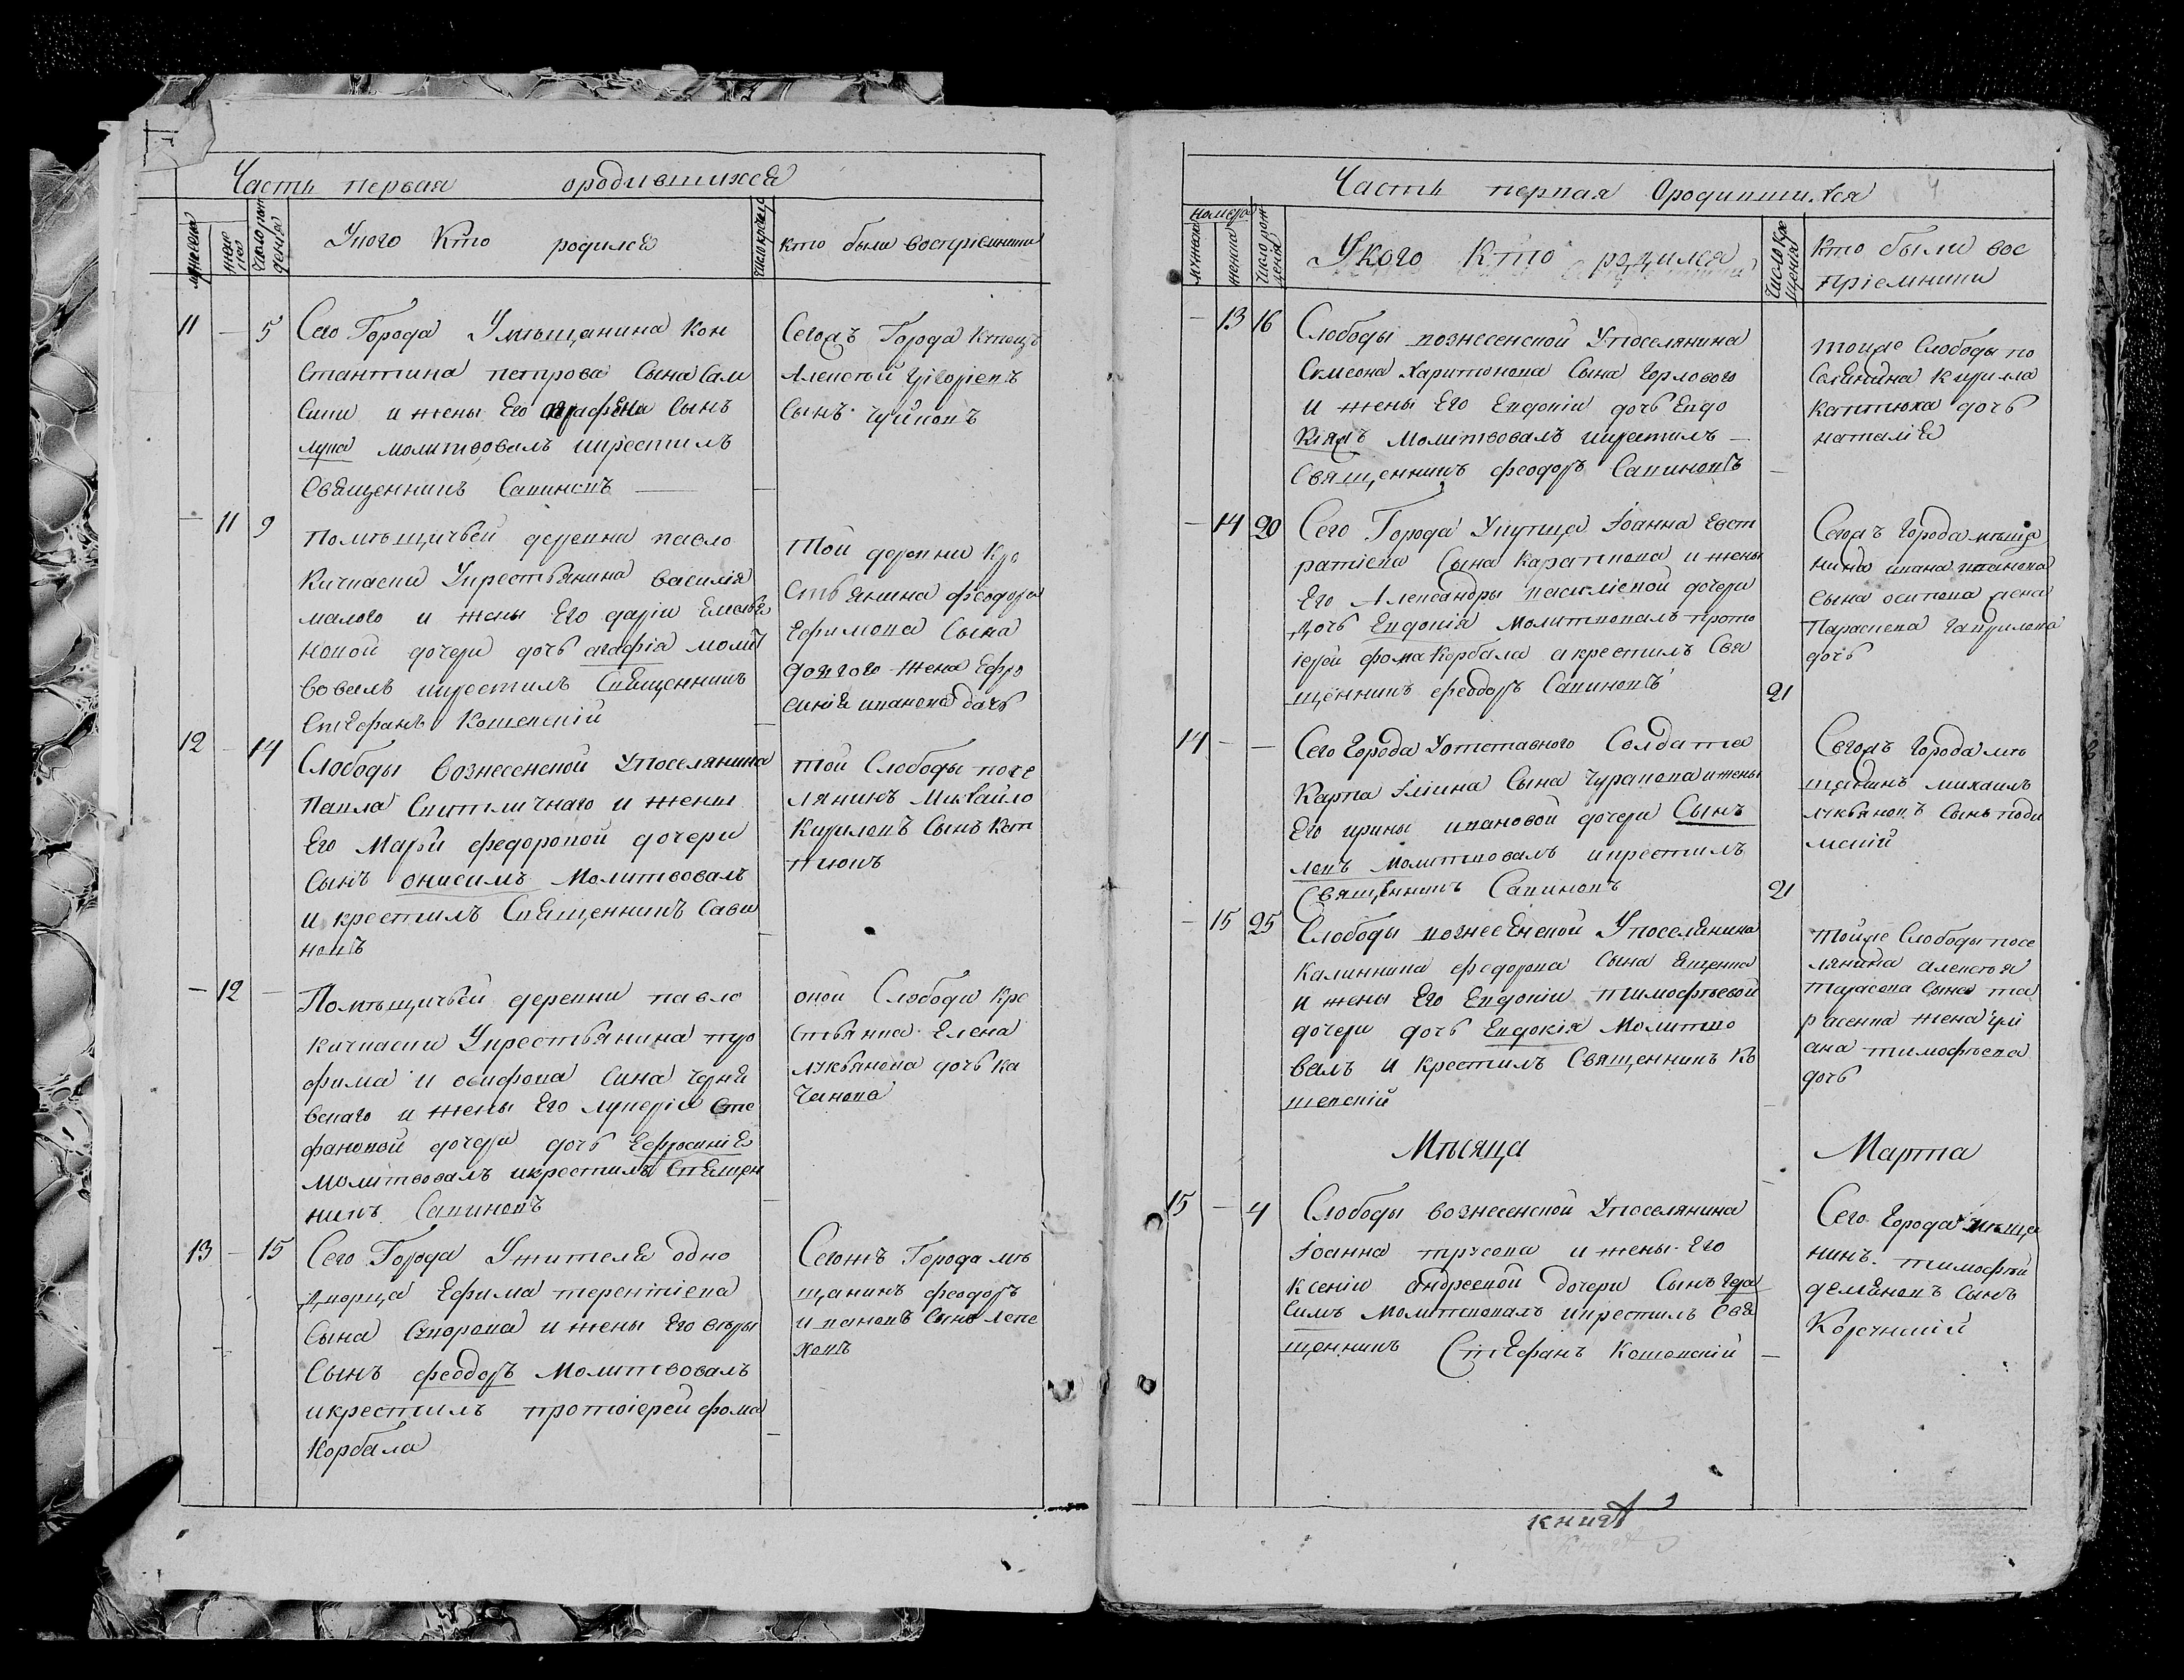 Часть первая ородившихся
мужеска
женс
ка
Число рож
дения
Укого Кто родился
Число креще
кто были восприемники
11 — 5 Сего Города Умѣщанина Кон
стантина петрова Сына Сам
сики и жены Его Сынъ
лука молитвовалъ икрестилъ
Священникъ Савиновъ —
Сегожъ Города Купецъ
Алексѣй Григориевъ
Сынъ Чуйковъ
— 11 9 Помѣщичьей деревни павло
Кичкаски Укрестьянина василія
малого и жены Его даріи Емелья
новой дочери дочь агафія молит
вовалъ икрестилъ Священникъ
Стефанъ Кошевскій —
той деревни Кре
стьянина феодора
Ефимова Сына
долгого жена Ефро
синія иванова дочь
12 — 14 Слободы Вознесенской Упоселянина
Павла Ситничнаго и жены
Его Маріи федоровой дочери
Сынъ онисимъ Молитвовалъ
и крестилъ Священникъ Сави
новъ —
той Слободы посе
лянинъ Михайло
Кириловъ Сынъ Кот
тюкъ
— 12 — Помѣщичьей деревни павло
кичкаски Укрестьянина тро
фима иосифова Сина Черня
вскаго и жены Его лукеріи Сте
фановой дочери дочь Ефросинія
молитвовалъ икрестилъ Священ
никъ Савиновъ —
оной Слободи Кре
стьянка Елена
лукьянова дочь Ка
чанова
13 — 15 Сего Города Ужителя одно
дворца Ефима терентіева
Сына Суворова и жены Его вѣры
Сынъ феодоръ Молитвовалъ
икрестилъ протоіерей фома
Корбала —
Сегожъ Города мѣ
щанинъ феодоръ
ивановъ Сынъ Лепе
ховъ
Часть первая Ородившихся 4
номера
мужеска
женска
Число рож
дения
Укого Кто родился
Число Кре
щения
Кто были вос
приемники
— 13 16 Слободы вознесенской Упоселянина
Симеона Харитонова Сына Горлового
и жены Его Евдокіи дочь Евдо
кия Молитвовалъ икрестилъ —
Священникъ феодоръ Савиновъ —
тойже Слободы по
селянина Кирилла
Коттюха дочь
наталія
— 14 20 Сего Города Укупца Іоанна Евст
ратіева Сына Каратнова и жены
Его Александры василіевой дочери
дочь Евдокія Молитвовалъ прото
іерей фома Корбала а крестилъ Свя
щенникъ феодоръ Савиновъ 21
Сегожъ Города мѣща
нина ивана иванова
Сына осипова жена
Параскева Гаврилова
дочь
14 — — Сего Города Уотставного Солдата
Карпа Ілина Сына Чуракова ижены
Его ирины ивановой дочери Сынъ
левъ Молитвовалъ икрестилъ
Священникъ Савиновъ 21
Сегожъ Города мѣ
щанинъ михаилъ
лукьяновъ Сынъ поди
мскій
— 15 25 Слободы вознесенской Упоселянина
Калинника федорова Сына Ященка
и жены Его Евдокіи тимофѣевой
дочери дочь Евдокія Молитво
валъ и крестилъ Священникъ Ко
шевскій —
тойже Слободы посе
лянина алексѣя
Тарасова Сына та
расенка жена улі
ана тимофѣева
дочь
Мѣсяца Марта
15 — 4 Слободы вознесенской Упоселянина
Іоанна трусова и жены Его
Ксеніи андреевой дочери Сынъ Гера
симъ Молитвовалъ икрестилъ Свя
щенникъ Стефанъ Кошевскій —
Сего Города мѣща
нинъ тимофѣй
демяновъ Сынъ
Коречнскій